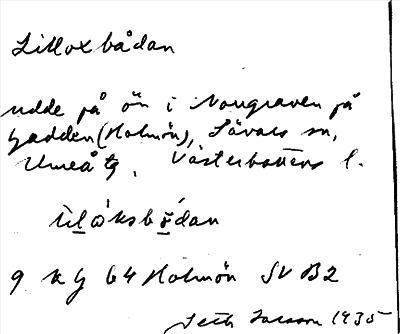 Lilloxbådan
udde på ön i Norgraven på
Gadden (Holmön), Sävars sn,
Umeå tg, Västerbottens l.
9 kg 64 Holmön SV B2
Seth Larsson 1935